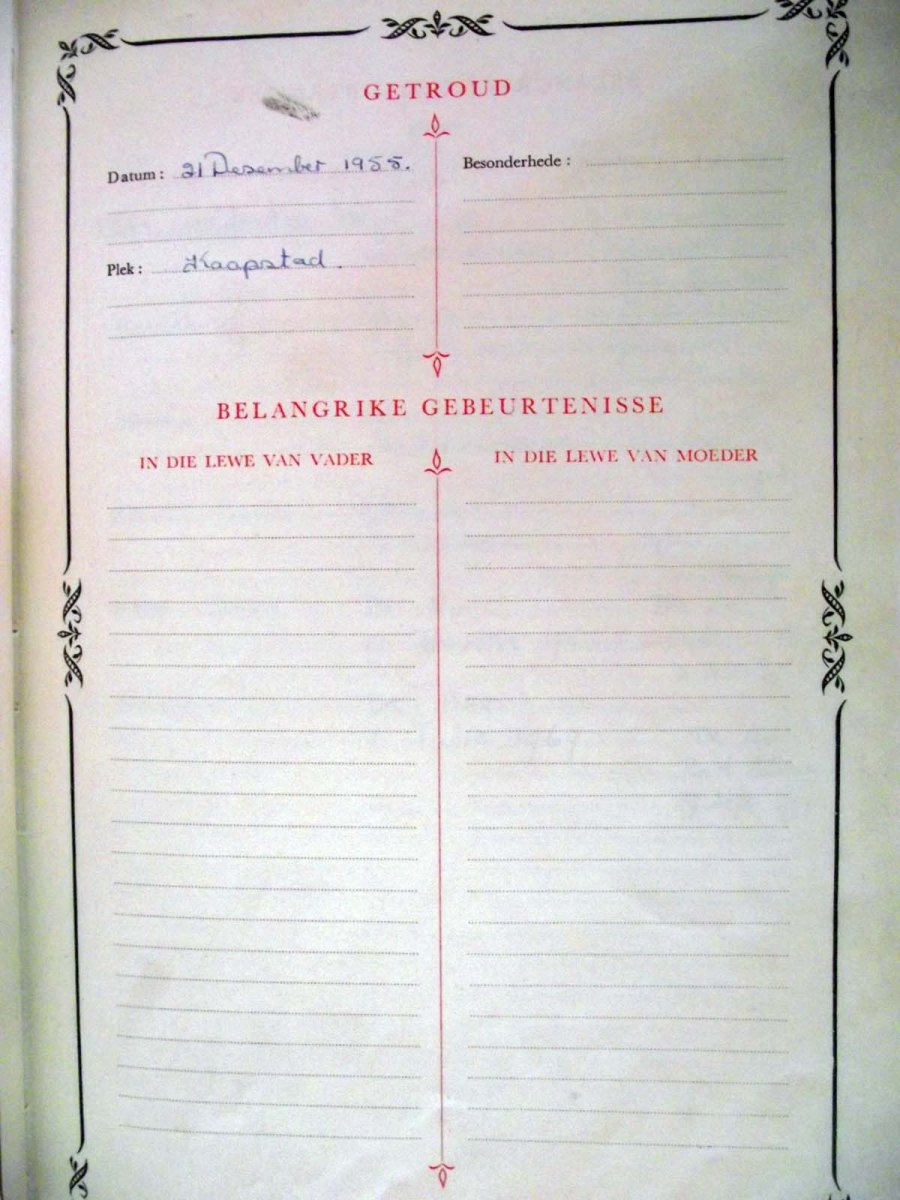 GETROUD
Datum : 21 Desember 1955.
Besonderhede :
Plek : Kaapstad.
BELANGRIKE GEBEURTENISSE
IN DIE LEWE VAN VADER
IN DIE LEWE VAN MOEDER